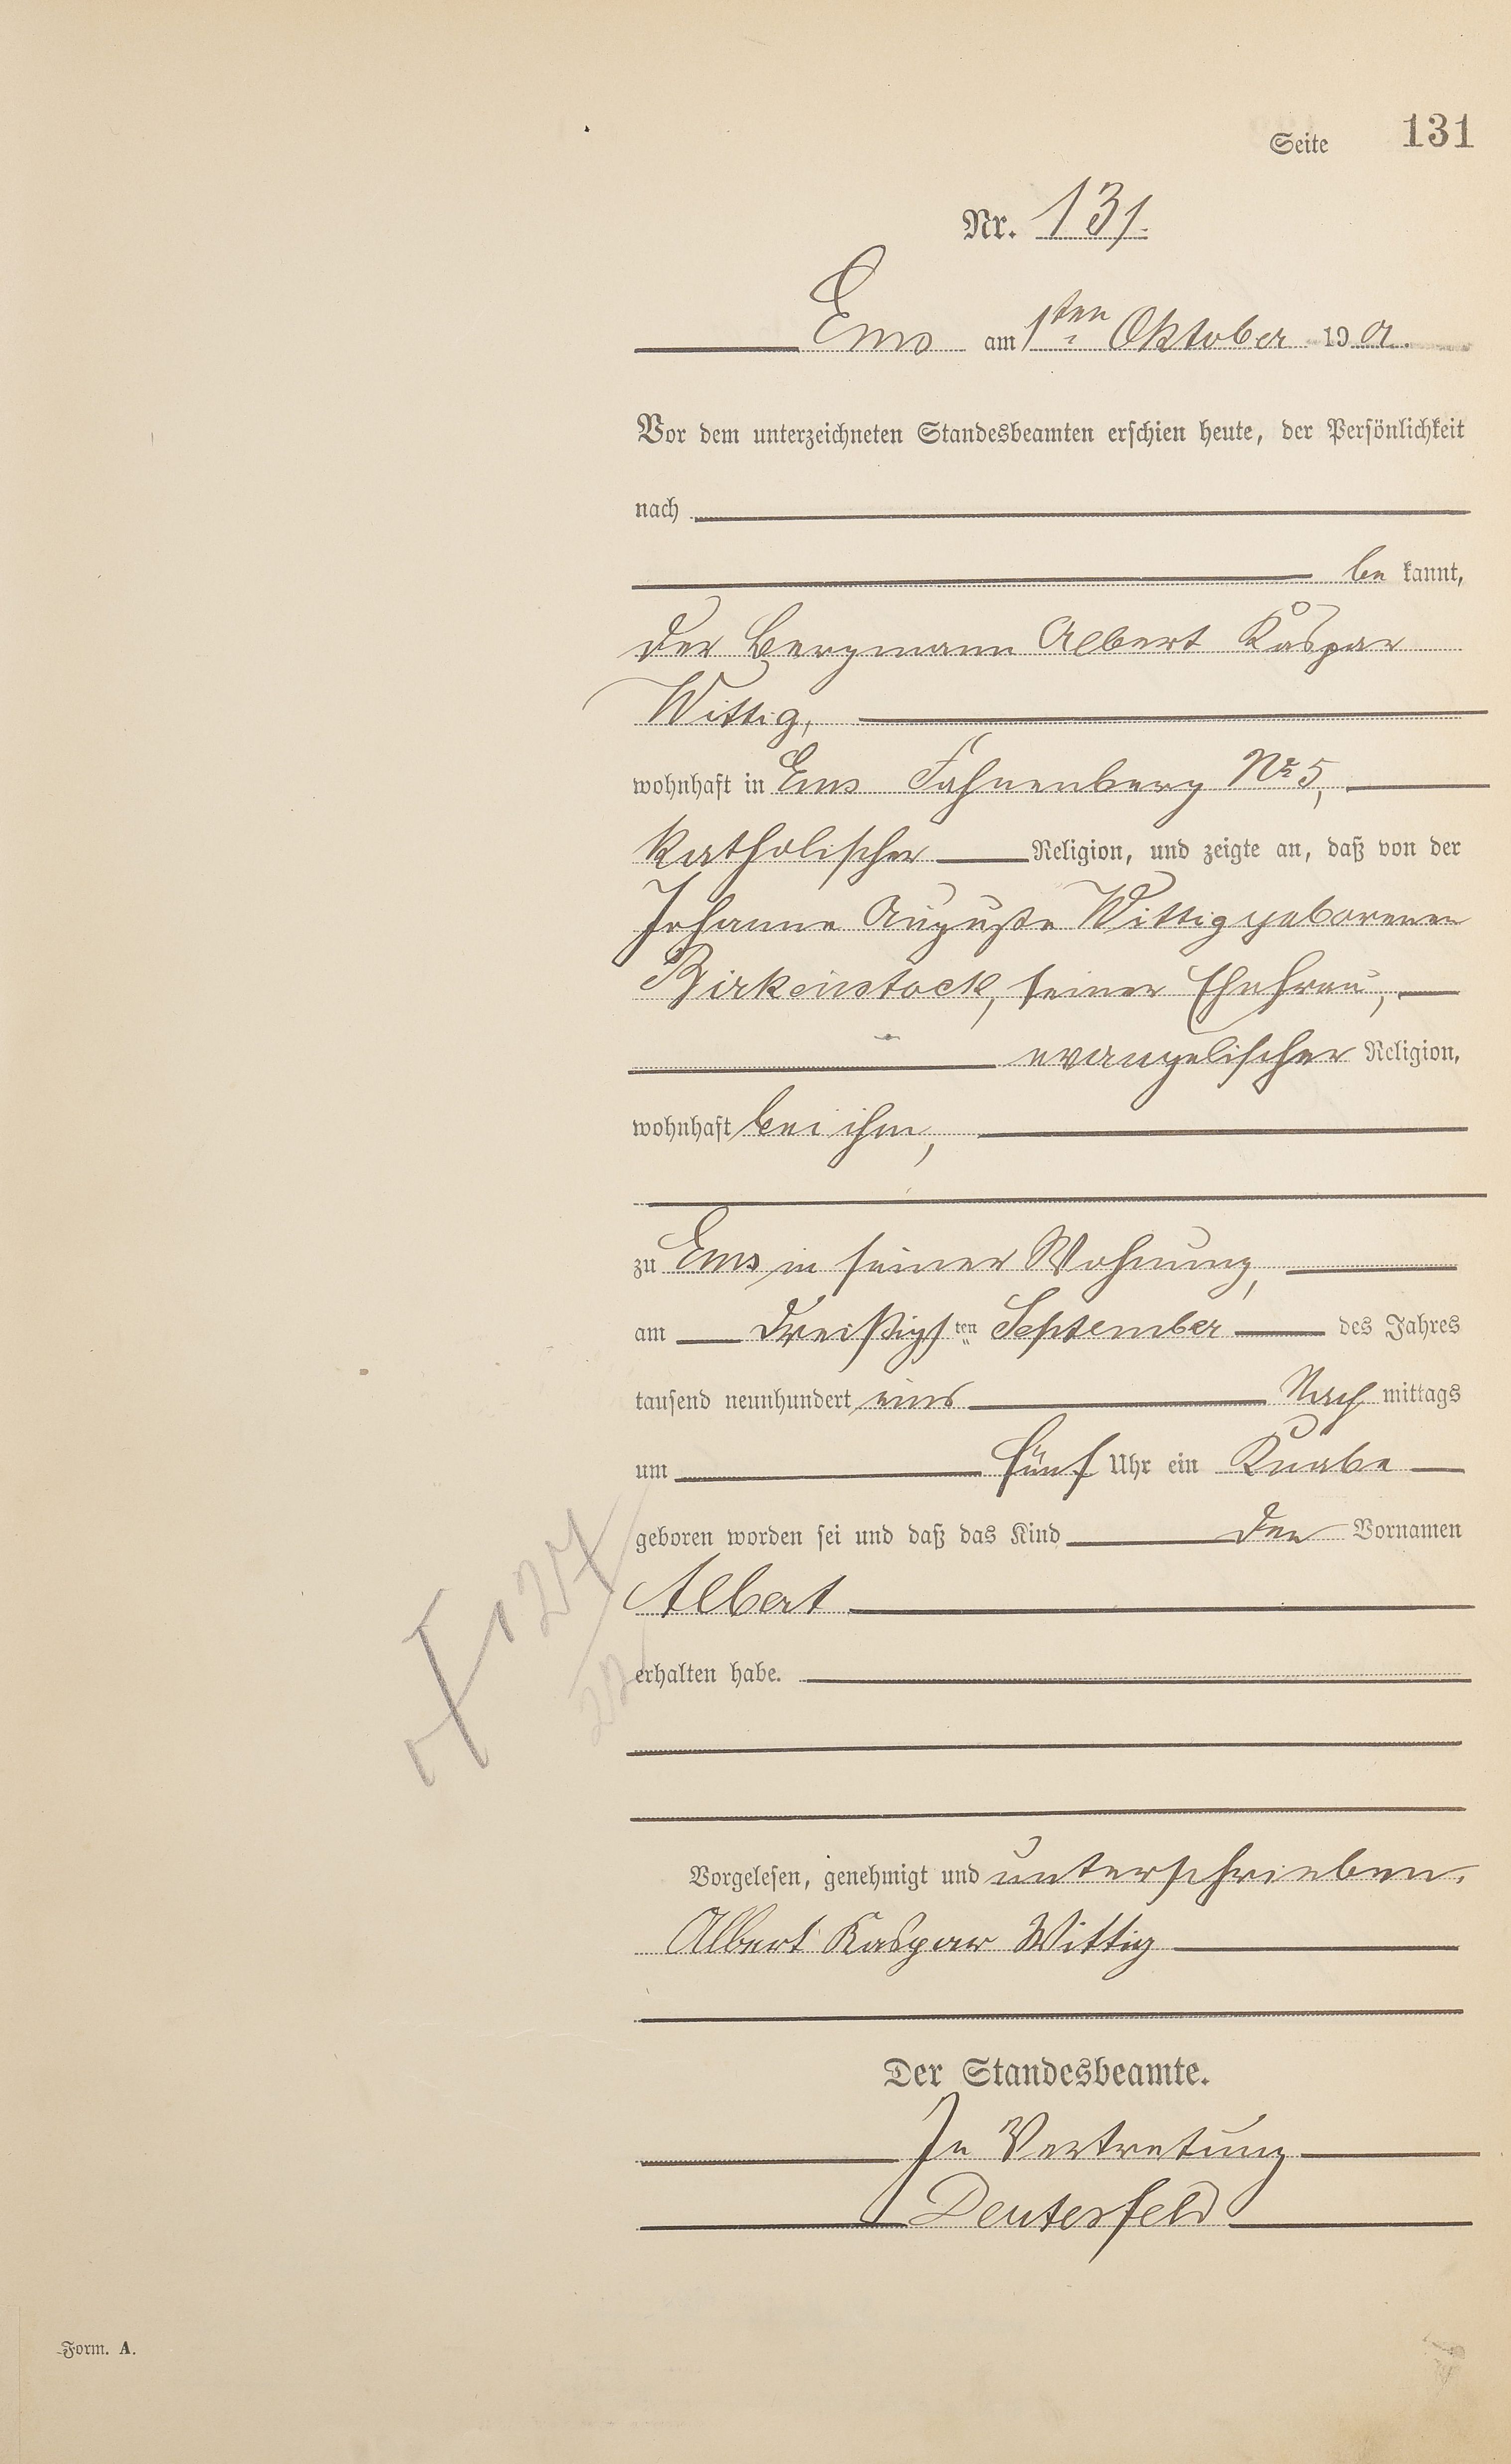 Seite 131
Nr. 131.
Ems am 1ten Oktober 190 1.
Vor dem unterzeichneten Standesbeamten erschien heute, der Persönlichkeit
nach
be kannt,
der Bergmann Albert Kaspar
Wittig,
wohnhaft in Ems Fahnenberg No 5,
katholischer Religion, und zeigte an, daß von der
Johanna Auguste Wittig geborenen
Birkenstock, seiner Ehefrau,
evangelischer Religion,
wohnhaft bei ihm,
zu Ems in seiner Wohnung,
am dreißigsten September des Jahres
tausend neunhundert eins Nach mittags
um fünf Uhr ein Knabe
geboren worden sei und daß das Kind den Vornamen
Albert
erhalten habe.
Vorgelesen, genehmigt und unterschrieben.
Albert Kaspar Wittig
Der Standesbeamte.
In Vertretung
Deuterfeld
Form. A.